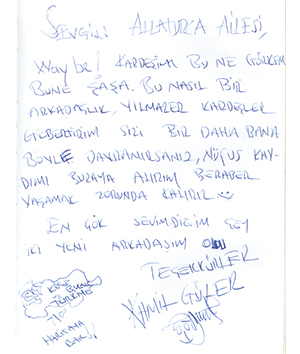 SEVGİLİ ALLATURCA AİLESİ,
Way be! KARDEŞİM BU NE GÖRKEM
BU NE ŞAŞA. BU NASIL BİR
ARKADAŞLIK, YILMAZER KARDEŞLER
GEBERTİRİM SİZİ BİR DAHA BANA
BÖYLE DAVRANIRSANIZ, NÜFUS KAY-
DIMI BURAYA ALIRIM BERABER
YAŞAMAK ZORUNDA KALIRIZ
EN ÇOK SEVİNDİĞİM ŞEY
İKİ YENİ ARKADAŞIM OLDU
TEŞEKKÜRLER
GÜLER
HARİTAYA
BAK!